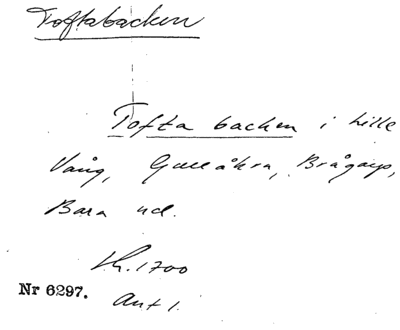 Toftabacken
Tofta backen i Lille
Vång, Gullåkra, Brågarp,
Bara hd.
Lh. 1700
Nr 6297.
Ant 1.